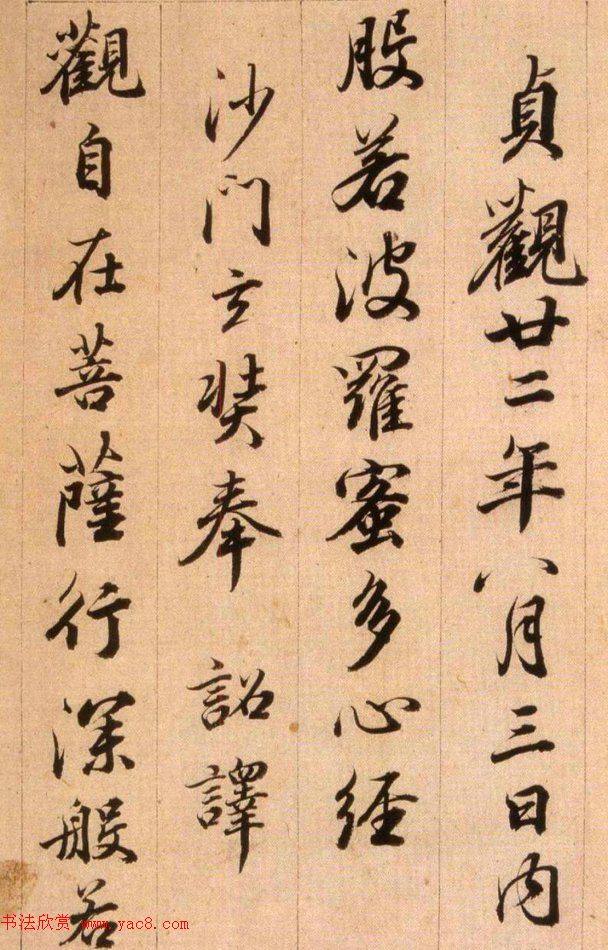 貞觀廿二年八月三日內
般若波羅蜜多心經
沙門玄奘奉 詔譯
觀自在菩薩行深般若
书法欣赏 www.yac8.com